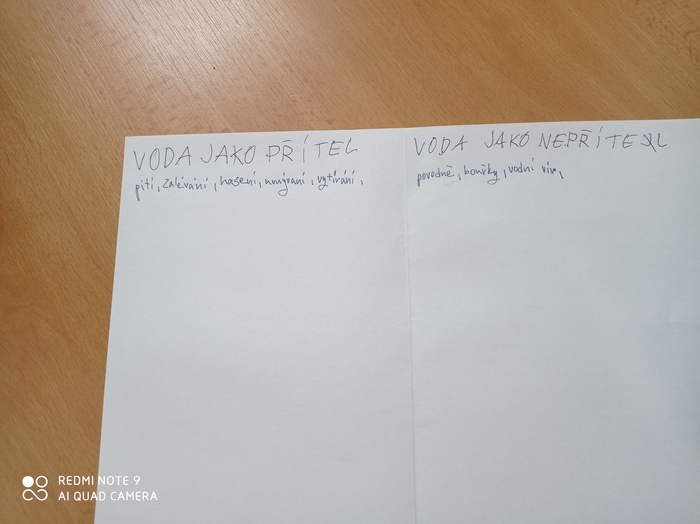 VODA JAKO PŘÍTEL
pití, zalévání, hašení, umývaní, vytírání,
VODA JAKO NEPŘÍTEL
povodně, bouřky, vodní vír,
REDMI NOTE 9
AI QUAD CAMERA